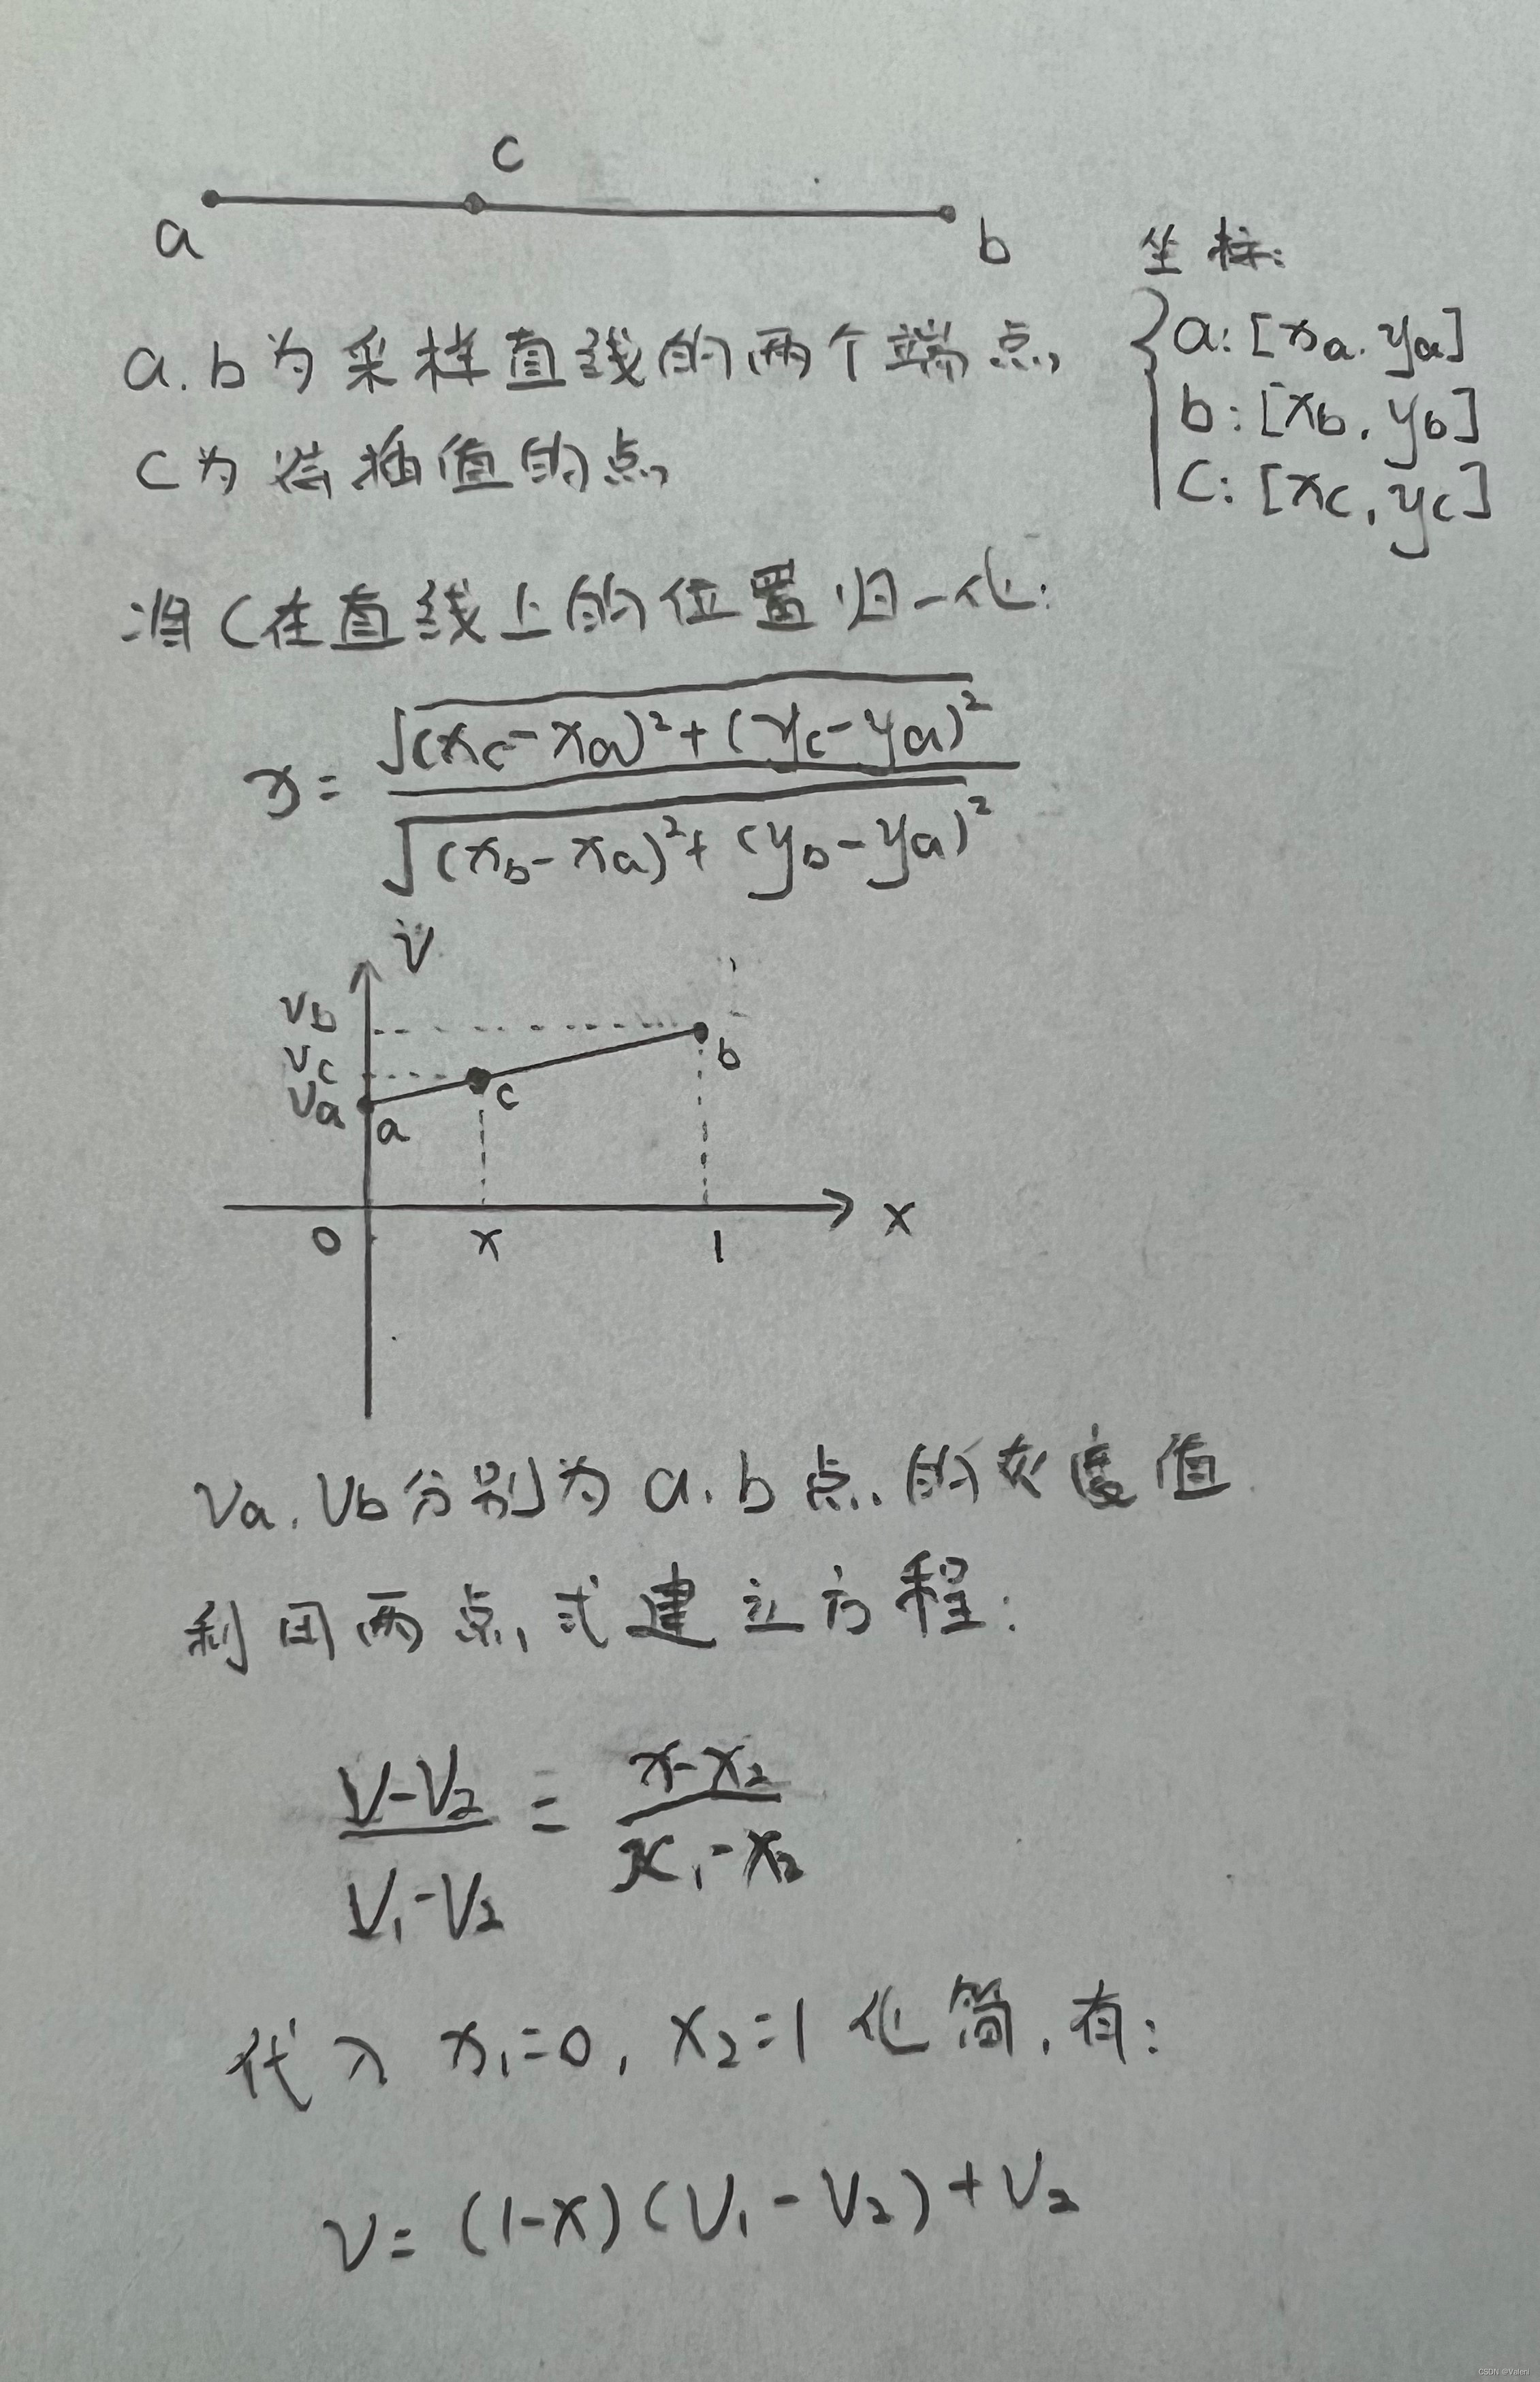 c
a
b
坐标:
a:[xa.ya]
b:[xb,yb]
c:[xc,yc]
a.b为采样直线的两个端点,
c为待插值的点,
将c在直线上的位置归一化:
x=√((xc-xa)²+(yc-ya)²)/√((xb-xa)²+(yb-ya)²)
v
vb
vc
va
a
c
b
0
x
1
x
va.vb分别为a.b点.的灰度值
利用两点式建立方程:
(v-v₂)/(v₁-v₂)=(x-x₂)/(x₁-x₂)
代入x₁=0,x₂=1化简,有:
v=(1-x)(v₁-v₂)+v₂
CSDN @Valeni